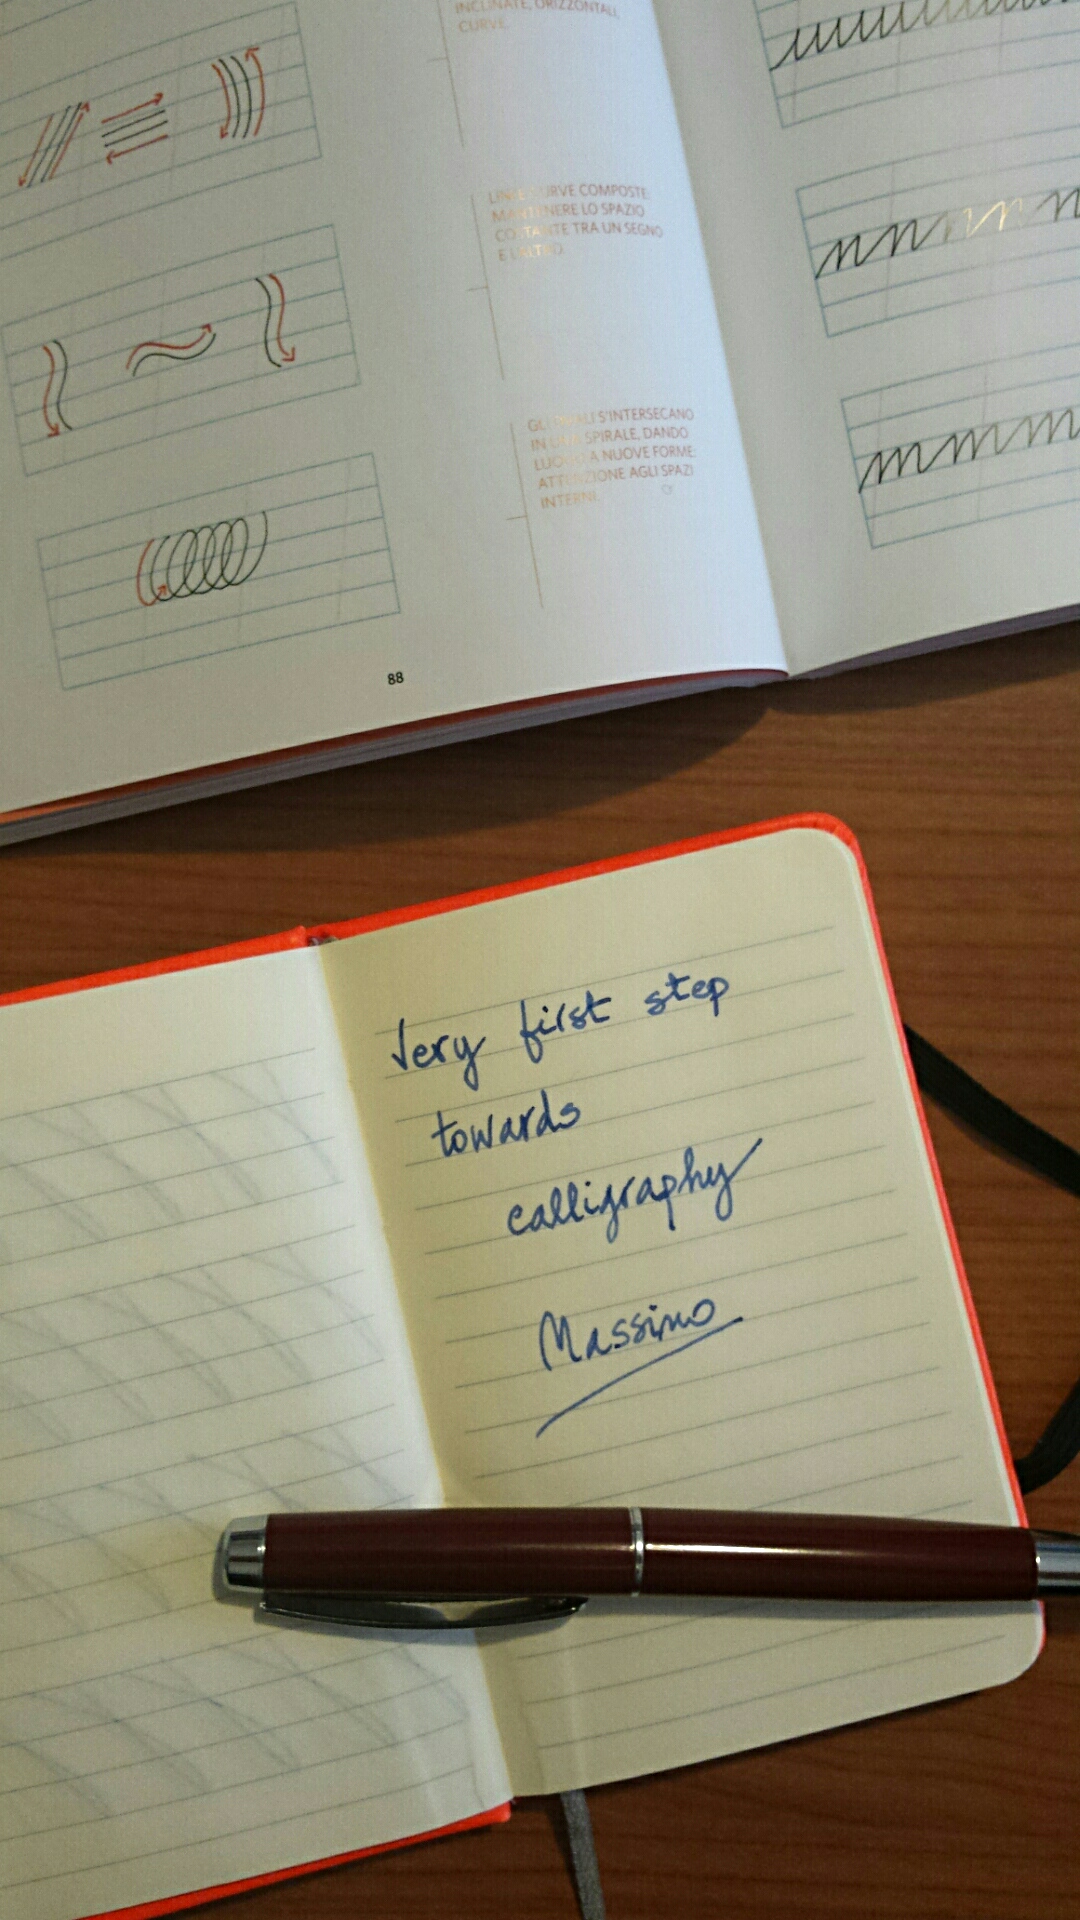 INCLINATE, ORIZZONTALI,
CURVE.
LINEE CURVE COMPOSTE:
MANTENERE LO SPAZIO
COSTANTE TRA UN SEGNO
E L'ALTRO.
GLI OVALI S'INTERSECANO
IN UNA SPIRALE, DANDO
LUOGO A NUOVE FORME:
ATTENZIONE AGLI SPAZI
INTERNI.
88
Very first step
towards
calligraphy
Massimo